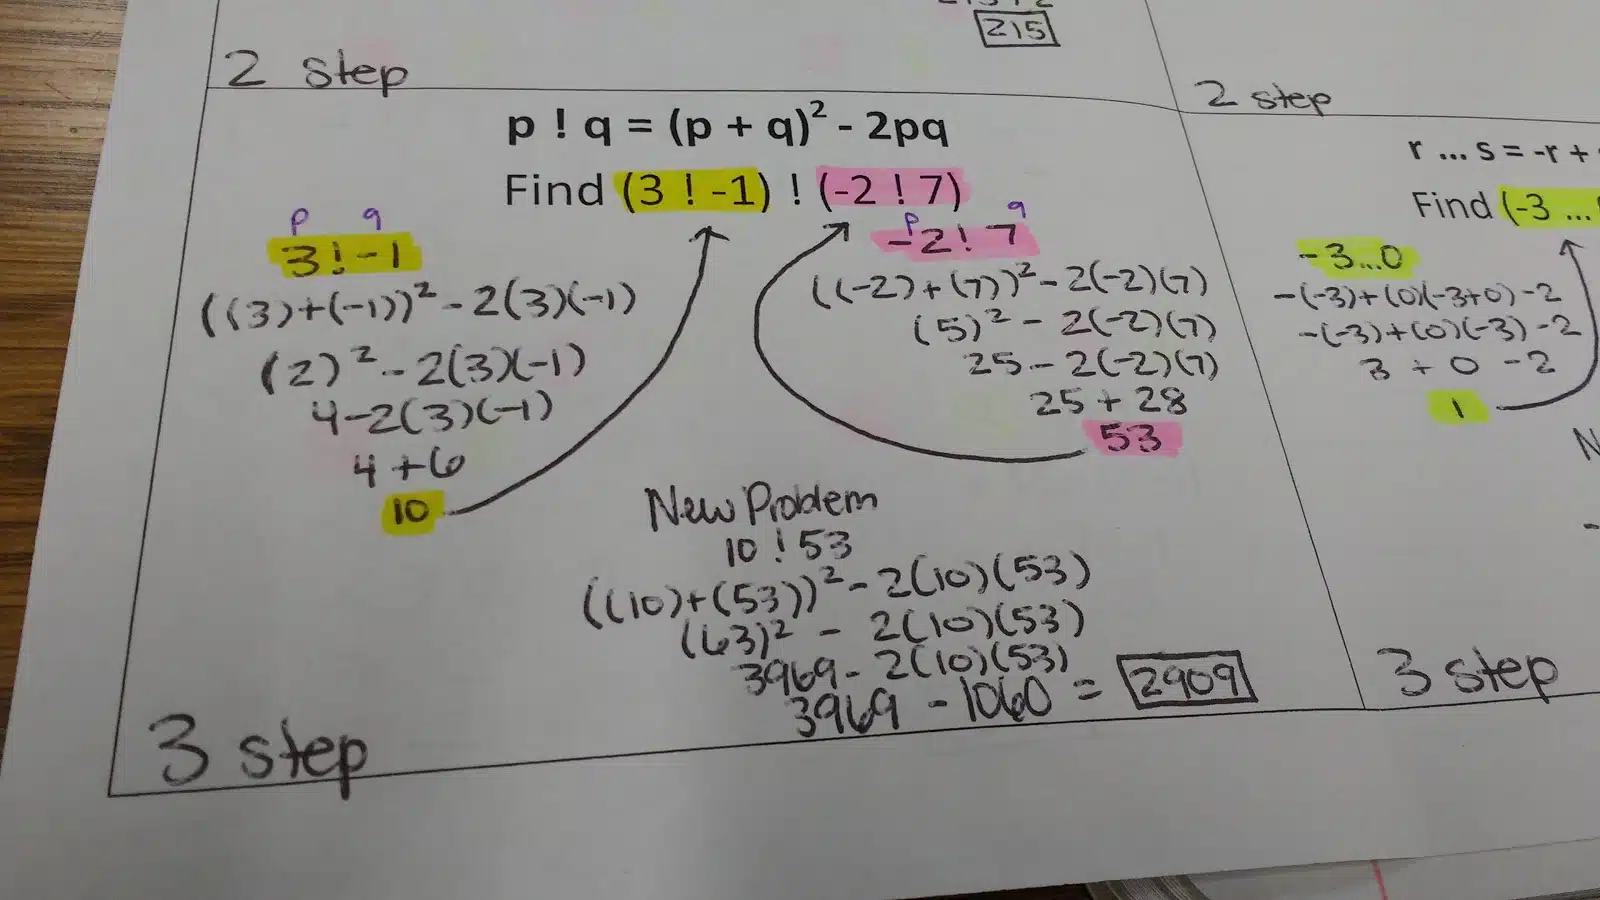 215
2 step
2 step
p ! q = (p + q)² - 2pq
Find (3 ! -1) ! (-2 ! 7)
p q
3 ! -1
((3)+(-1))² - 2(3)(-1)
(2)² - 2(3)(-1)
4 - 2(3)(-1)
4 + 6
10
p q
-2 ! 7
((-2)+(7))² - 2(-2)(7)
(5)² - 2(-2)(7)
25 - 2(-2)(7)
25 + 28
53
New Problem
10 ! 53
((10)+(53))² - 2(10)(53)
(63)² - 2(10)(53)
3969 - 2(10)(53)
3969 - 1060 = 2909
3 step
r ... s = -r +
Find (-3 ...
-3...0
-(-3)+(0)(-3+0)-2
-(-3)+(0)(-3)-2
3 + 0 - 2
1
3 step